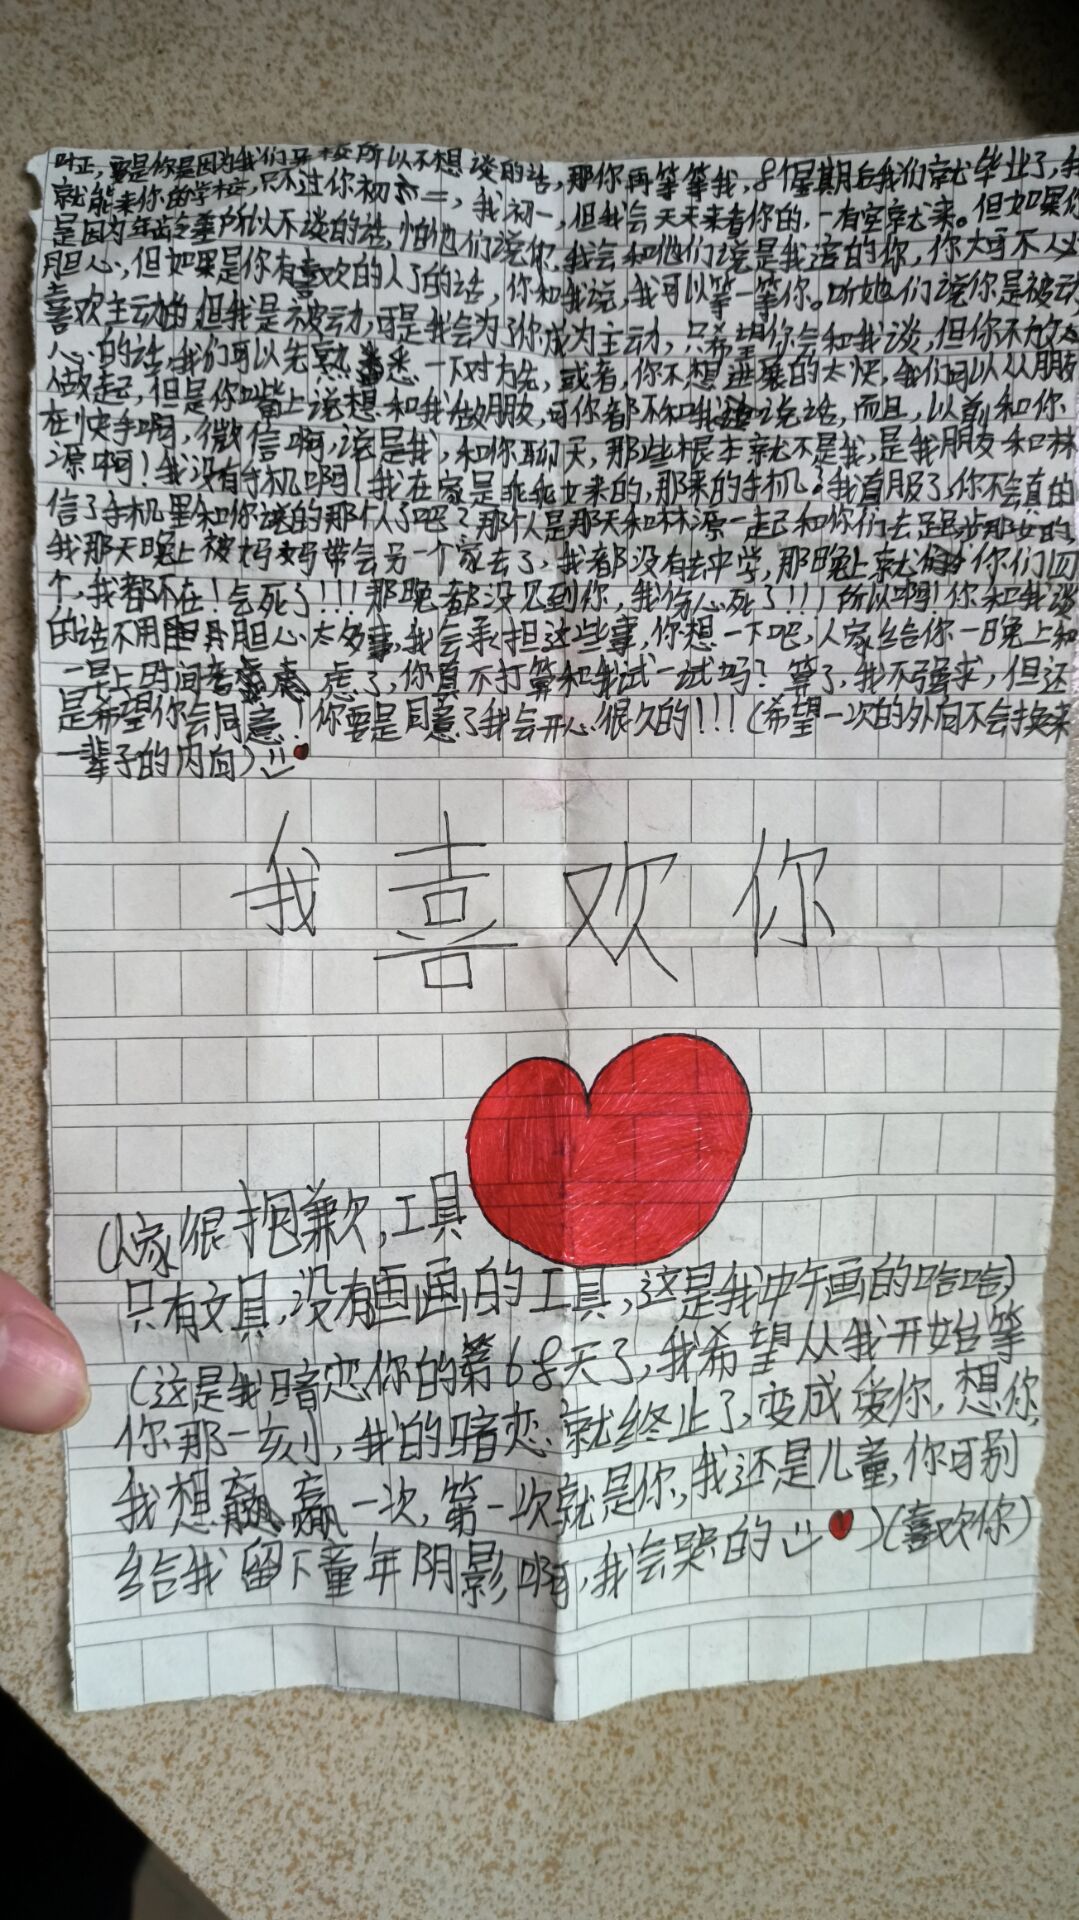 叶正,要是你是因为我们异校所以不想谈的话,那你再等等我,8个星期后我们就毕业了,我
就能来你的学校,只不过你初二,我初一,但我会天天来看你的,一有空就来。但如果你
是因为年龄差所以不谈的话,怕他们说你,我会和他们说是我追的你,你大可不必
担心,但如果是你有喜欢的人了的话,你和我说,我可以等一等你。听她们说你是被动,
喜欢主动的,但我是被动,可是我会为了你成为主动,只希望你会和我谈,但你不放
心的话,我们可以先熟悉一下对方先,或者,你不想进展的太快,我们可以从朋友
做起,但是你嘴上说想和我做朋友,可你都不和我说话,而且,以前和你
在快手啊,微信啊,说是我,和你聊天,那些根本就不是我,是我朋友和林
源啊!我没有手机啊!我在家是乖乖女来的,那来的手机?我真服了,你不会真的
信了手机里和你谈的那个人了吧?那个人是那天和林源一起和你们去跑步那女的,
我那天晚上被妈妈带会另一个家去了,我都没有去中学,那晚上就你们四
个,我都不在!气死了!!!那晚都没见到你,我伤心死了!!!所以啊!你和我谈
的话不用担心太多事,我会承担这些事,你想一下吧,人家给你一晚上和
一早上时间考虑了,你真不打算和我试一试吗?算了,我不强求,但还
是希望你会同意!你要是同意了我会开心很久的!!!(希望一次的外向不会换来
一辈子的内向)
我喜欢你
(人家很抱歉,工具
只有文具,没有画画的工具,这是我中午画的哈哈)
(这是我暗恋你的第68天了,我希望从我开始等
你那一刻,我的暗恋就终止了,变成爱你,想你,
我想赢一次,第一次就是你,我还是儿童,你可别
给我留下童年阴影啊,我会哭的)(喜欢你)